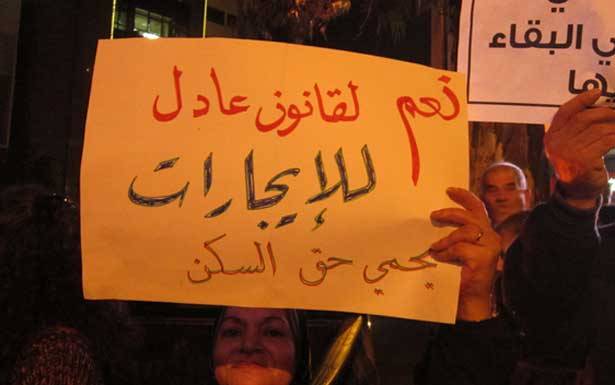 نعم لقانون عادل
للإيجارات
يحمي حق السكن
ي البقاء